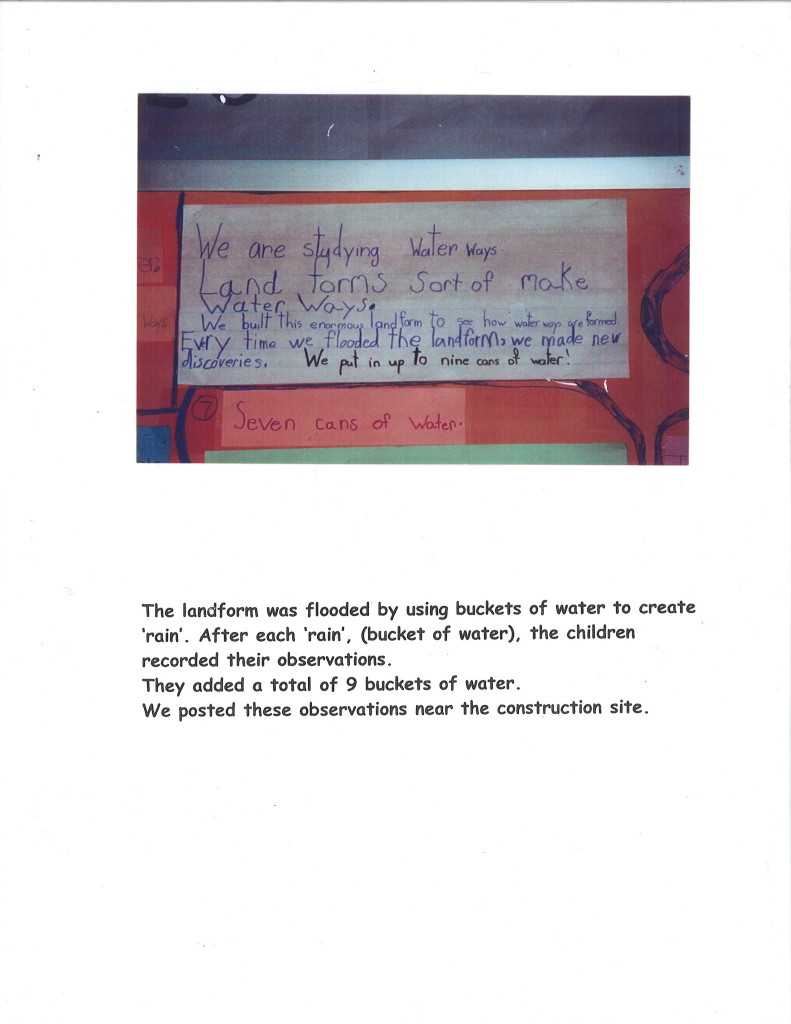 We are studying Water Ways
Land forms Sort of make
Water Ways.
We built this enormous landform to see how water ways are formed.
Every time we flooded the landform, we made new
discoveries. We put in up to nine cans of water!
er.
Ways
7 Seven cans of Water.
The landform was flooded by using buckets of water to create
‘rain’. After each ‘rain’, (bucket of water), the children
recorded their observations.
They added a total of 9 buckets of water.
We posted these observations near the construction site.